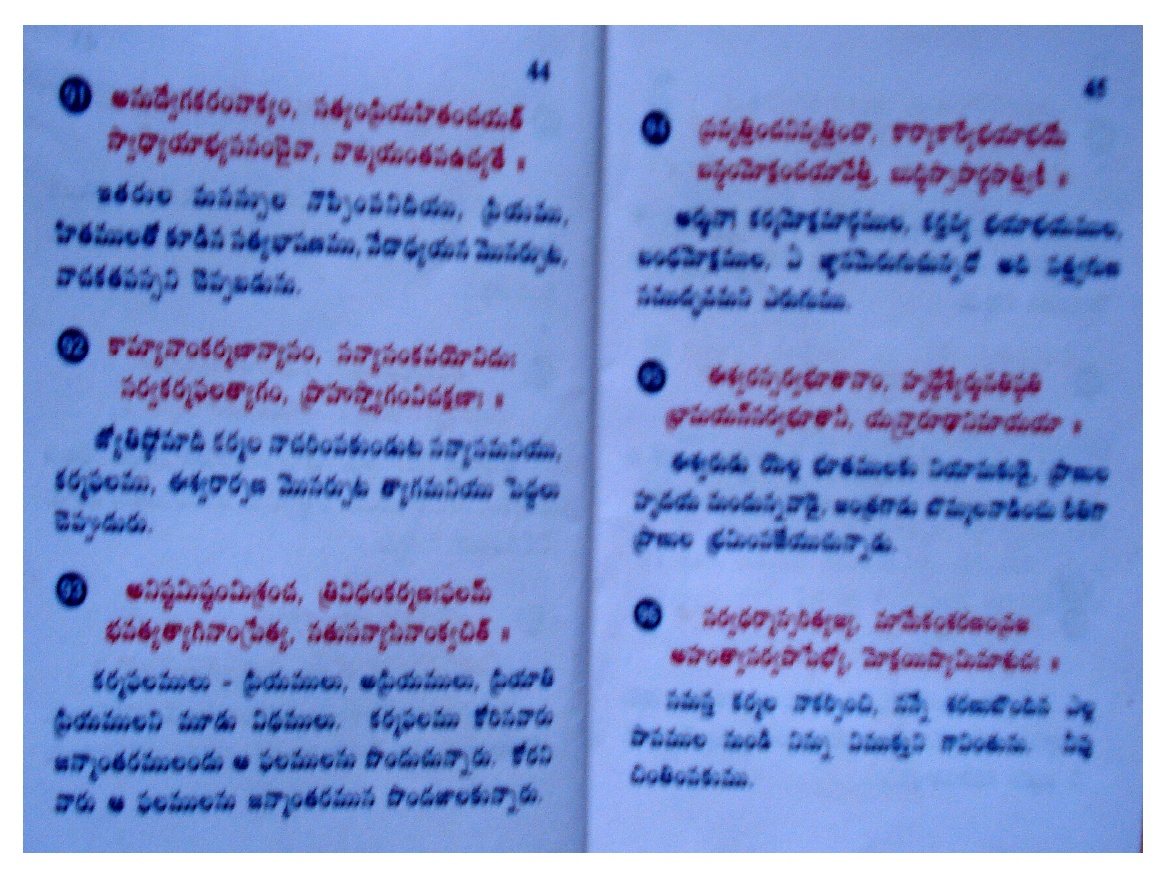 44
91 అనుద్వేగకరంవాక్యం, సత్యంప్రియహితంచయత్
స్వాధ్యాయాభ్యసనంచైవా, వాఙ్మయంతపఉచ్యతే ॥
ఇతరుల మనస్సుల నొప్పింపనిదియు, ప్రియము,
హితములతో కూడిన సత్యభాషణము, వేదాధ్యయన మొనర్చుట,
వాచకతపస్సని చెప్పబడును.
92 కామ్యానాంకర్మణాన్యాసం, సన్యాసంకవయోవిదుః
సర్వకర్మఫలత్యాగం, ప్రాహుస్త్యాగంవిచక్షణాః ॥
జ్యోతిష్టోమాది కర్మల నాచరింపకుండుట సన్యాసమనియు,
కర్మఫలము, ఈశ్వరార్పణ మొనర్చుట త్యాగమనియు పెద్దలు
చెప్పుదురు.
93 అనిష్టమిష్టంమిశ్రంచ, త్రివిధంకర్మణఃఫలమ్
భవత్యత్యాగినాంప్రేత్య, నతుసన్యాసినాంక్వచిత్ ॥
కర్మఫలములు - ప్రియములు, అప్రియములు, ప్రియాతి
ప్రియములని మూడు విధములు. కర్మఫలము కోరినవారు
జన్మాంతరములందు ఆ ఫలములను పొందుచున్నారు. కోరని
వారు ఆ ఫలములను జన్మాంతరమున పొందజాలకున్నారు.
45
94 ప్రవృత్తించనివృత్తించా, కార్యాకార్యేభయాభయే
బన్ధంమోక్షంచయావేత్తి, బుద్ధిస్సాపార్థసాత్త్వికీ ॥
అర్జునా! కర్మమోక్షమార్గముల, కర్తవ్య భయాభయముల,
బంధమోక్షముల, ఏ జ్ఞానమెరుగుచున్నదో అది సత్త్వగుణ
సముద్భవమని ఎరుగుము.
95 ఈశ్వరస్సర్వభూతానాం, హృద్దేశేర్జునతిష్ఠతి
భ్రామయన్‌సర్వభూతాని, యన్త్రారూఢానిమాయయా ॥
ఈశ్వరుడు యెల్ల భూతములకు నియామకుడై, ప్రాణుల
హృదయ మందున్నవాడై, జంత్రగాడు బొమ్మలనాడించు రీతిగా
ప్రాణుల భ్రమింపజేయుచున్నాడు.
96 సర్వధర్మాన్పరిత్యజ్య, మామేకంశరణంవ్రజ
అహంత్వాసర్వపాపేభ్యో, మోక్షయిష్యామిమాశుచః ॥
సమస్త కర్మల నాకర్పించి, నన్నే శరణుబొందిన ఎల్ల
పాపముల నుండి నిన్ను విముక్తుని గావింతును. నీవు
చింతింపకుము.